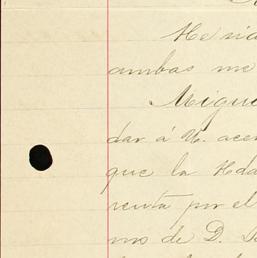 He
ambas me
Migue
dar á U. acer
que la Hda
renta por el
mo de D.